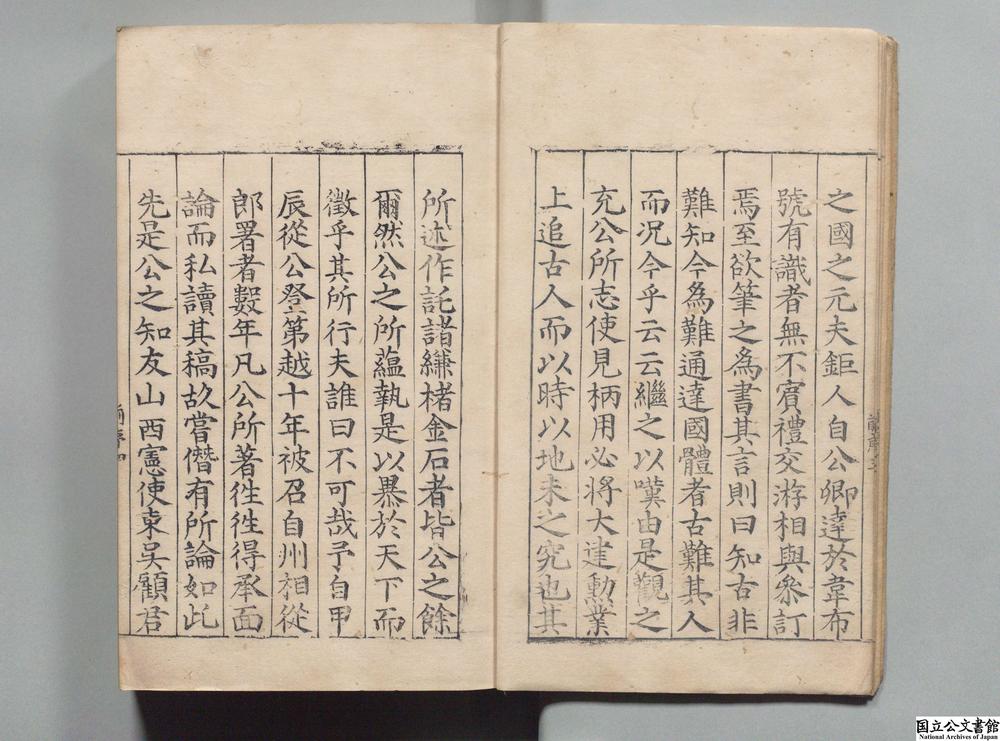 之國之元夫鉅人自公卿達於韋布
號有識者無不賓禮交游相與叅訂
焉至欲筆之爲書其言則曰知古非
難知今爲難通達國體者古難其人
而况今乎云云繼之以嘆由是觀之
充公所志使見柄用必將大建勲業
上追古人而以時以地未之究也其
所述作託諸縑楮金石者皆公之餘
爾然公之所蘊執是以㬥於天下而
徵乎其所行夫誰曰不可哉予自甲
辰從公登第越十年被召自州相從
郎署者數年凡公所著徃徃得承面
論而私讀其稿故嘗僭有所論如此
先是公之知友山西憲使東吴顧君
国立公文書館
National Archives of Japan